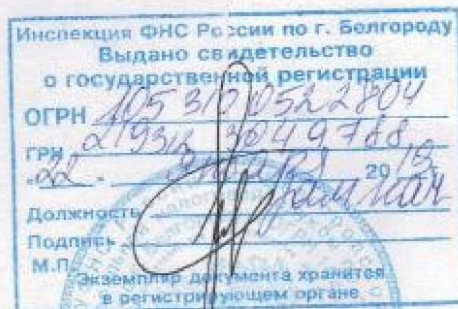 Инспекция ФНС России по г. Белгороду
Выдано свидетельство
о государственной регистрации
ОГРН 1053100522804
ГРН 2193123049788
"22" января 2019
Должность
Подпись
М.П.
Экземпляр документа хранится
в регистрирующем органе